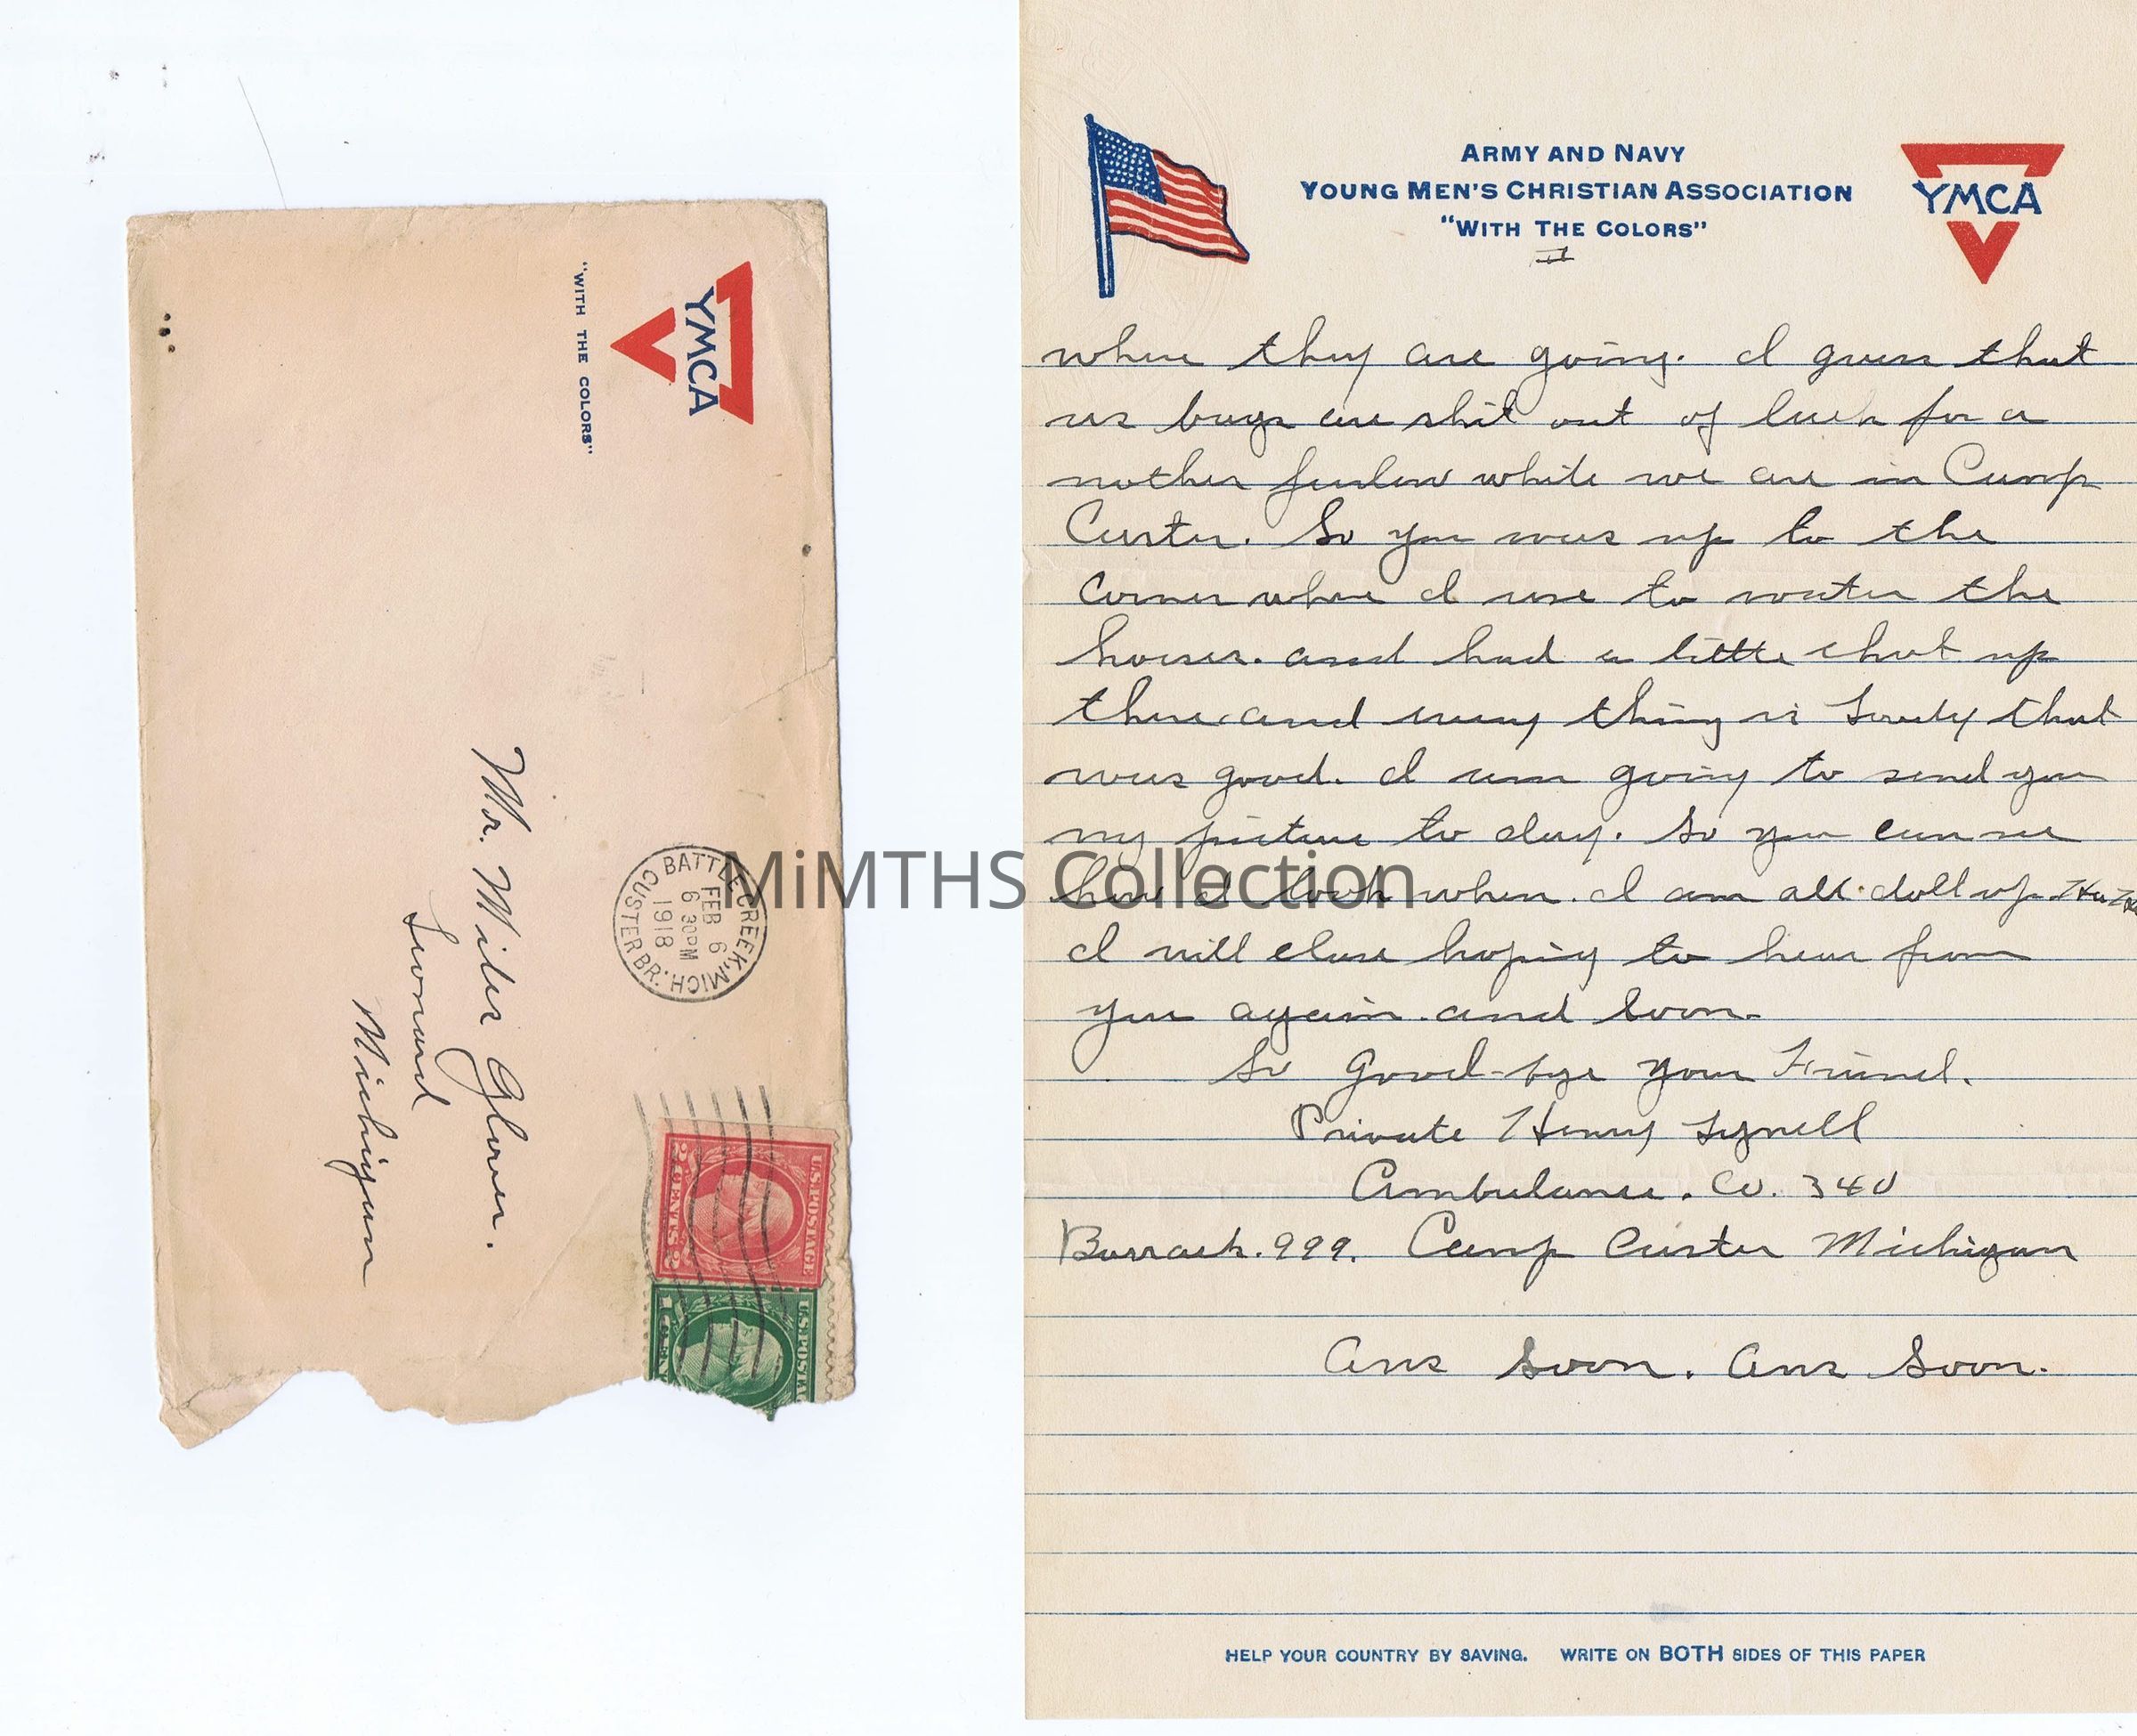 YMCA
"WITH THE COLORS"
BATTLE CREEK, MICH.
FEB 6
6 30PM
1918
CUSTER BR.
U.S. POSTAGE
2 CENTS 2
U.S. POSTAG
1 CEN
Mr. Miles Glover.
Leonard
Michigan
MiMTHS Collection
ARMY AND NAVY
YOUNG MEN'S CHRISTIAN ASSOCIATION
"WITH THE COLORS"
YMCA
II
where they are going. I guess that
us buys are shit out of luck for a
nother furlow while we are in Camp
Custer. So you was up to the
corner where I use to water the
horses. and had a little chat up
there. and every thing is lovely that
was good. I am going to send you
my picture to day. so you can see
how I look when. I am all doll up. Ha Ha
I will close hoping to hear from
you again. and soon.
So Good-bye your Friend.
Private Henry
Ambulance. Co. 340
Barrack. 999. Camp Custer Michigan
Ans Soon. Ans Soon.
HELP YOUR COUNTRY BY SAVING. WRITE ON BOTH SIDES OF THIS PAPER